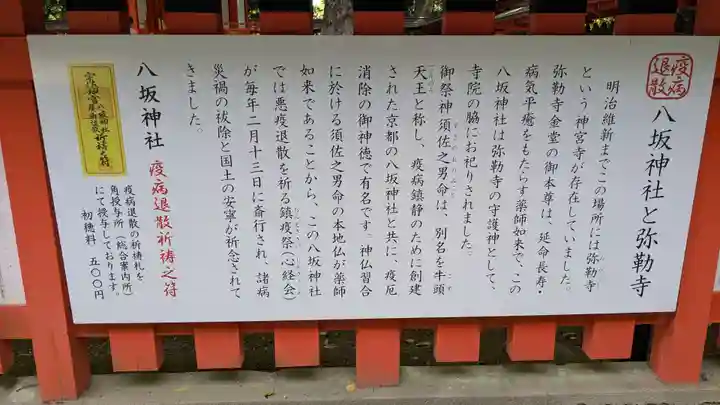 疫病
退散
八坂神社と弥勒寺
明治維新までこの場所には弥勒寺
という神宮寺が存在していました。
弥勒寺金堂の御本尊は、延命長寿・
病気平癒をもたらす薬師如来で、この
八坂神社は弥勒寺の守護神として、
寺院の脇にお祀りされました。
御祭神須佐之男命は、別名を牛頭
天王と称し、疫病鎮静のために創建
された京都の八坂神社と共に、疫厄
消除の御神徳で有名です。神仏習合
に於ける須佐之男命の本地仏が薬師
如来であることから、この八坂神社
では悪疫退散を祈る鎮疫祭（心経会）
が毎年二月十三日に斎行され、諸病
災禍の祓除と国土の安寧が祈念されて
きました。
八坂神社 疫病退散祈祷之符
疫病退散の祈祷札を
角授与所（総合案内所）
にて授与しております。
初穂料 五〇〇円